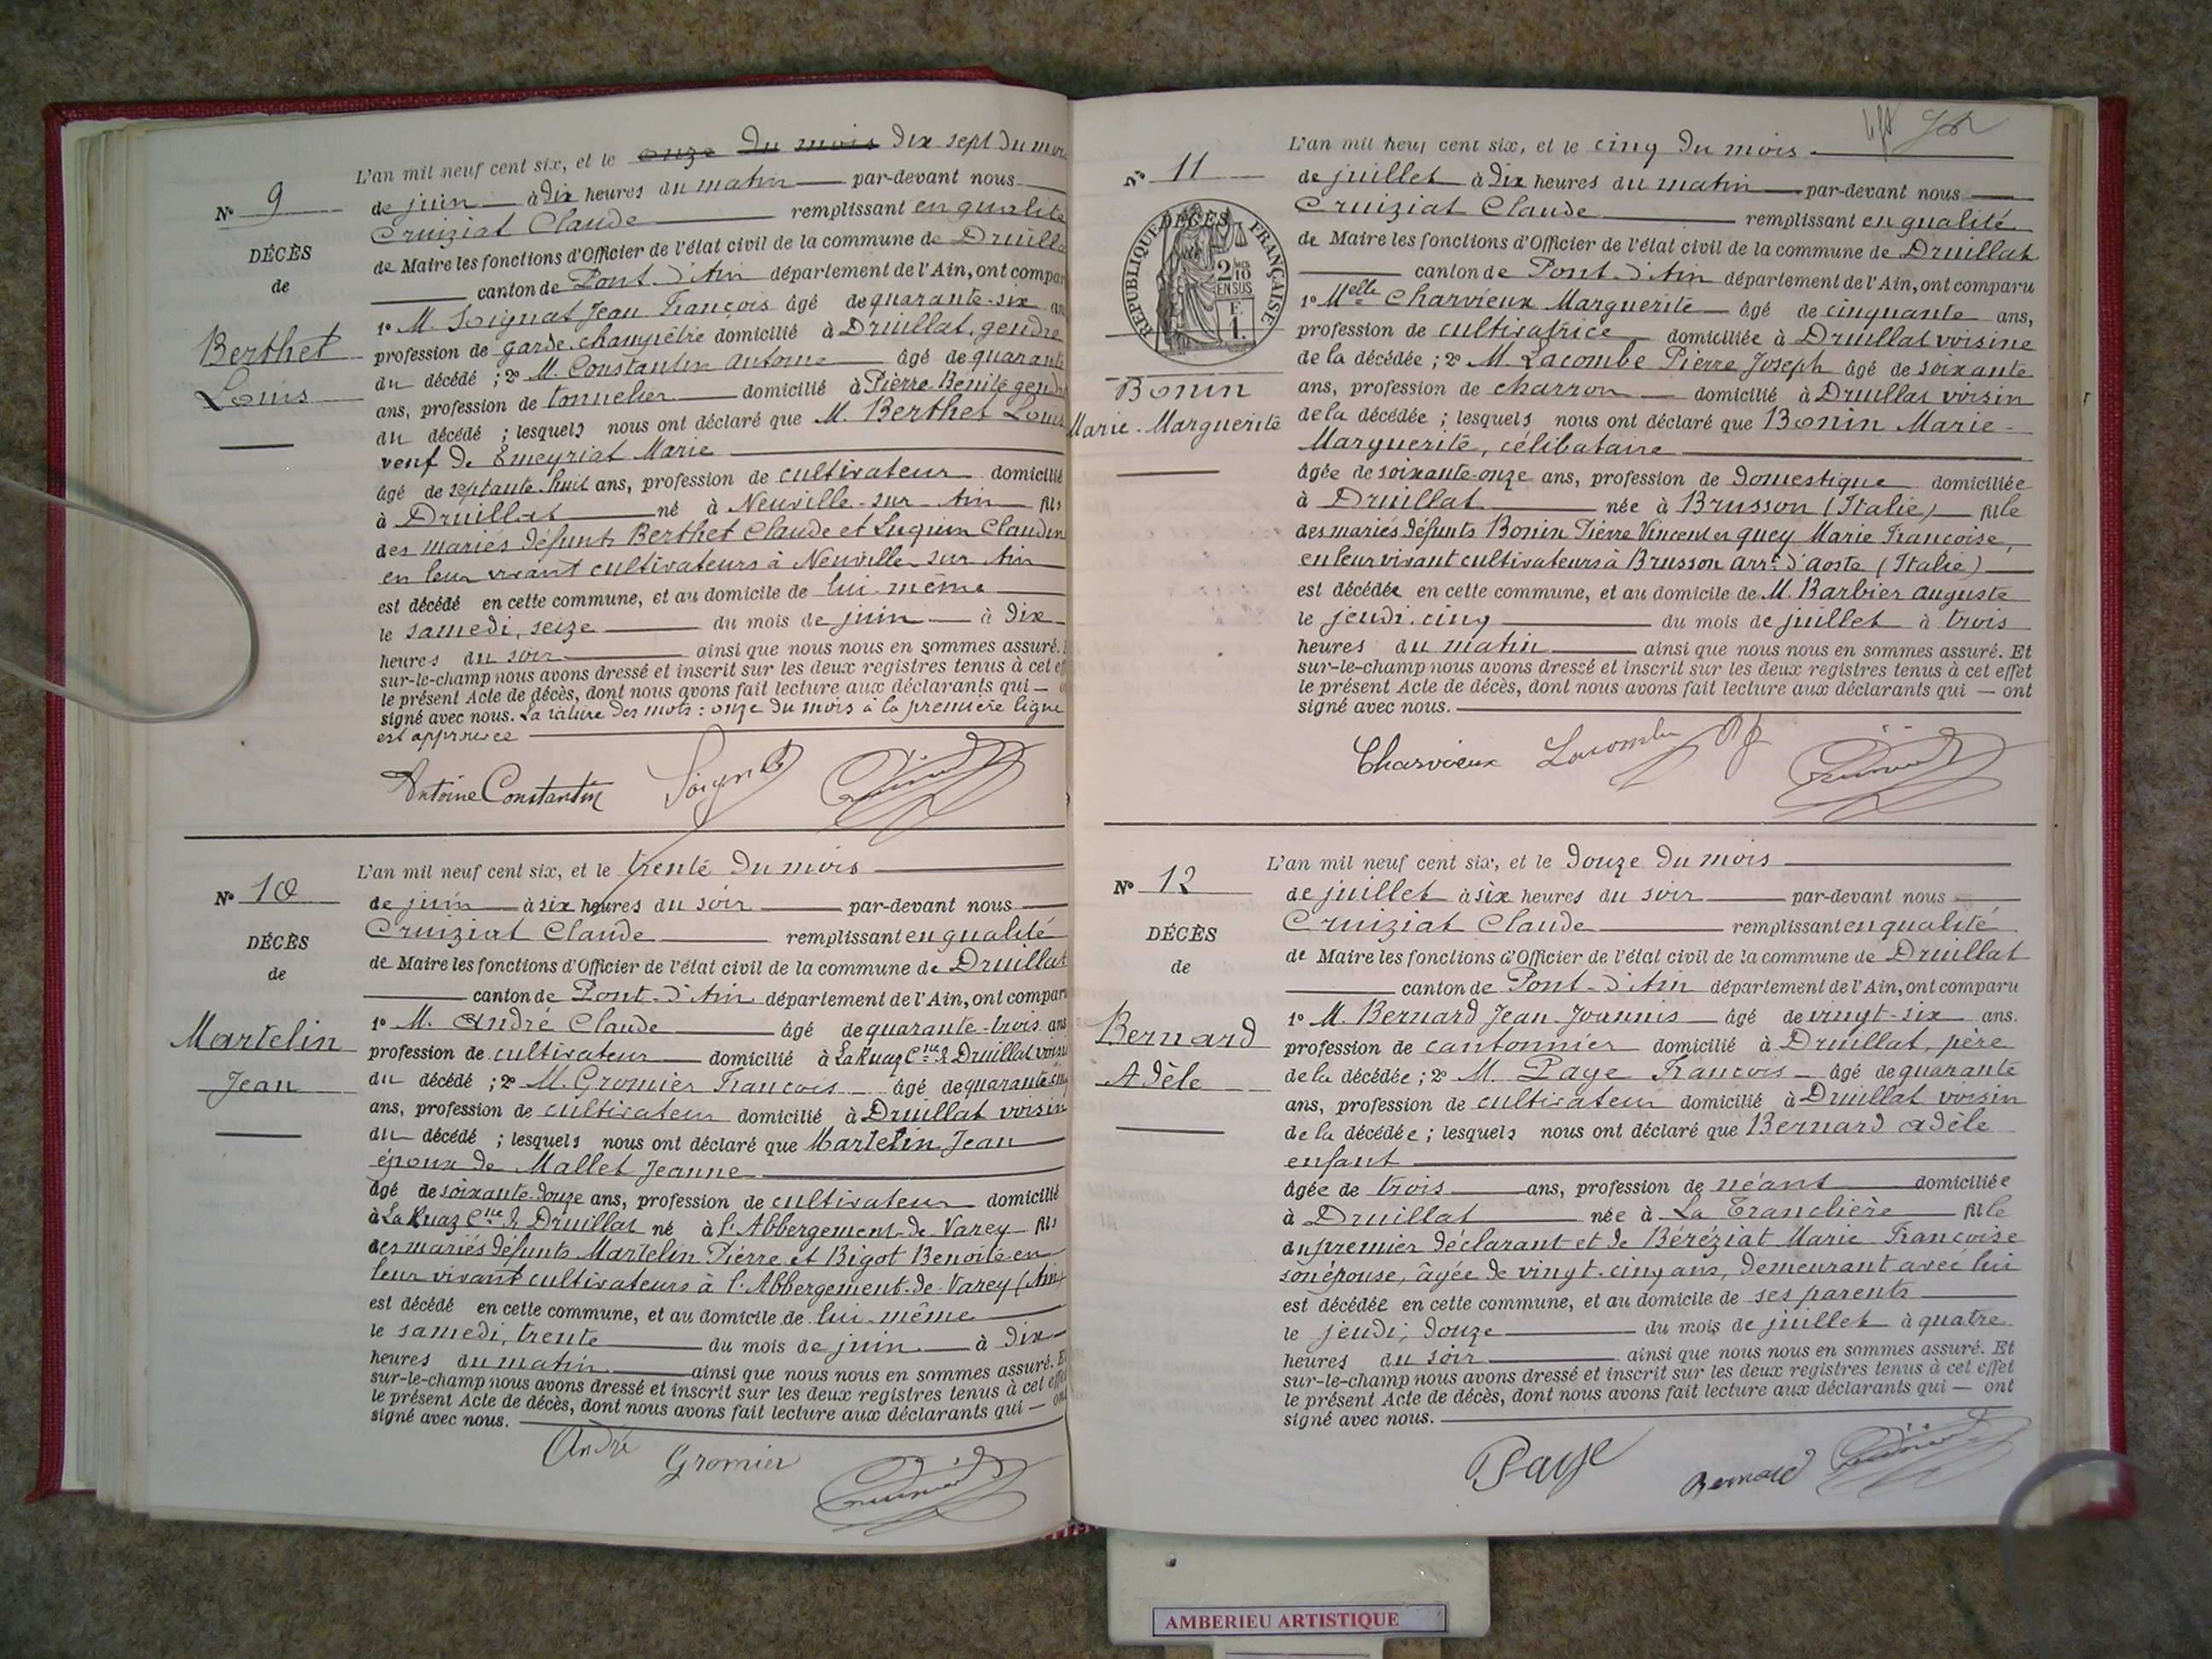 L'an mil neuf cent six, et le onze du mois dix sept du mois
N° 9
de juin à dix heures du matin par-devant nous
Cruiziat Claude remplissant en qualité
DÉCÈS
de Maire les fonctions d'Officier de l'état civil de la commune de Druillat
de
canton de Pont-d'Ain département de l'Ain, ont comparu
1° M. Soignat Jean François âgé de quarante-six ans
Berthet
profession de garde-champêtre domicilié à Druillat, gendre
du décédé ; 2° M. Constantin Antoine âgé de quarante
Louis
ans, profession de tonnelier domicilié à Pierre Bénite gendre
du décédé ; lesquels nous ont déclaré que M. Berthet Louis
veuf de Emeyriat Marie
âgé de septante-huit ans, profession de cultivateur domicilié
à Druillat né à Neuville-sur-Ain fils
des mariés défunts Berthet Claude et Luquin Claudine
en leur vivant cultivateurs à Neuville sur Ain
est décédé en cette commune, et au domicile de lui-même
le samedi, seize du mois de juin à dix
heures du soir ainsi que nous nous en sommes assuré.
sur-le-champ nous avons dressé et inscrit sur les deux registres tenus à cet eff
le présent Acte de décès, dont nous avons fait lecture aux déclarants qui —
signé avec nous. La rature des mots : onze du mois à la première ligne
est approuvée
Antoine Constantin Soignat
L'an mil neuf cent six, et le trente du mois
N° 10
de juin à six heures du soir par-devant nous
Cruiziat Claude remplissant en qualité
DÉCÈS
de Maire les fonctions d'Officier de l'état civil de la commune de Druillat
de
canton de Pont-d'Ain département de l'Ain, ont comparu
1° M. André Claude âgé de quarante-trois ans
Martelin
profession de cultivateur domicilié à La Ruaz Cne de Druillat voisin
Jean
du décédé ; 2° M. Gromier François âgé de quarante cinq
ans, profession de cultivateur domicilié à Druillat voisin
du décédé ; lesquels nous ont déclaré que Martelin Jean
époux de Mallet Jeanne
âgé de soixante-douze ans, profession de cultivateur domicilié
à La Ruaz Cne de Druillat né à l'Abbergement-de-Varey fils
des mariés défunts Martelin Pierre et Bigot Benoite en
leur vivant cultivateurs à l'Abbergement-de-Varey (Ain)
est décédé en cette commune, et au domicile de lui-même
le samedi, trente du mois de juin à dix
heures du matin ainsi que nous nous en sommes assuré. Et
sur-le-champ nous avons dressé et inscrit sur les deux registres tenus à cet effet
le présent Acte de décès, dont nous avons fait lecture aux déclarants qui — ont
signé avec nous.
André Gromier
L'an mil neuf cent six, et le cinq du mois
N° 11
de juillet à dix heures du matin par-devant nous
Cruiziat Claude remplissant en qualité
RÉPUBLIQUE FRANÇAISE
DÉCÈS
2/10 EN SUS
F. 1.
de Maire les fonctions d'Officier de l'état civil de la commune de Druillat
canton de Pont-d'Ain département de l'Ain, ont comparu
1° Melle Charvieux Marguerite âgé de cinquante ans,
profession de cultivatrice domiciliée à Druillat voisine
de la décédée ; 2° M. Lacombe Pierre Joseph âgé de soixante
Bonin
ans, profession de charron domicilié à Druillat voisin
Marie-Marguerite
de la décédée ; lesquels nous ont déclaré que Bonin Marie-
Marguerite, célibataire
âgée de soixante-onze ans, profession de domestique domiciliée
à Druillat née à Brusson (Italie) fille
des mariés défunts Bonin Pierre Vincent et Quey Marie Françoise,
en leur vivant cultivateurs à Brusson arrt d'Aoste (Italie)
est décédée en cette commune, et au domicile de M. Barbier Auguste
le jeudi, cinq du mois de juillet à trois
heures du matin ainsi que nous nous en sommes assuré. Et
sur-le-champ nous avons dressé et inscrit sur les deux registres tenus à cet effet
le présent Acte de décès, dont nous avons fait lecture aux déclarants qui — ont
signé avec nous.
Charvieux Lacombe
L'an mil neuf cent six, et le douze du mois
N° 12
de juillet à six heures du soir par-devant nous
Cruiziat Claude remplissant en qualité
DÉCÈS
de Maire les fonctions d'Officier de l'état civil de la commune de Druillat
de
canton de Pont-d'Ain département de l'Ain, ont comparu
1° M. Bernard Jean-Joannis âgé de vingt-six ans.
Bernard
profession de cantonnier domicilié à Druillat, père
Adèle
de la décédée ; 2° M. Page François âgé de quarante
ans, profession de cultivateur domicilié à Druillat voisin
de la décédée ; lesquels nous ont déclaré que Bernard Adèle
enfant
âgée de trois ans, profession de néant domiciliée
à Druillat née à La Tranclière fille
du premier déclarant et de Béréziat Marie Françoise
son épouse, âgée de vingt-cinq ans, demeurant avec lui
est décédée en cette commune, et au domicile de ses parents
le jeudi, douze du mois de juillet à quatre
heures du soir ainsi que nous nous en sommes assuré. Et
sur-le-champ nous avons dressé et inscrit sur les deux registres tenus à cet effet
le présent Acte de décès, dont nous avons fait lecture aux déclarants qui — ont
signé avec nous.
Page Bernard
AMBERIEU ARTISTIQUE